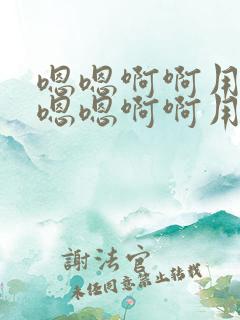 嗯嗯啊啊用
嗯嗯啊啊用
謝法官
未经同意禁止转载